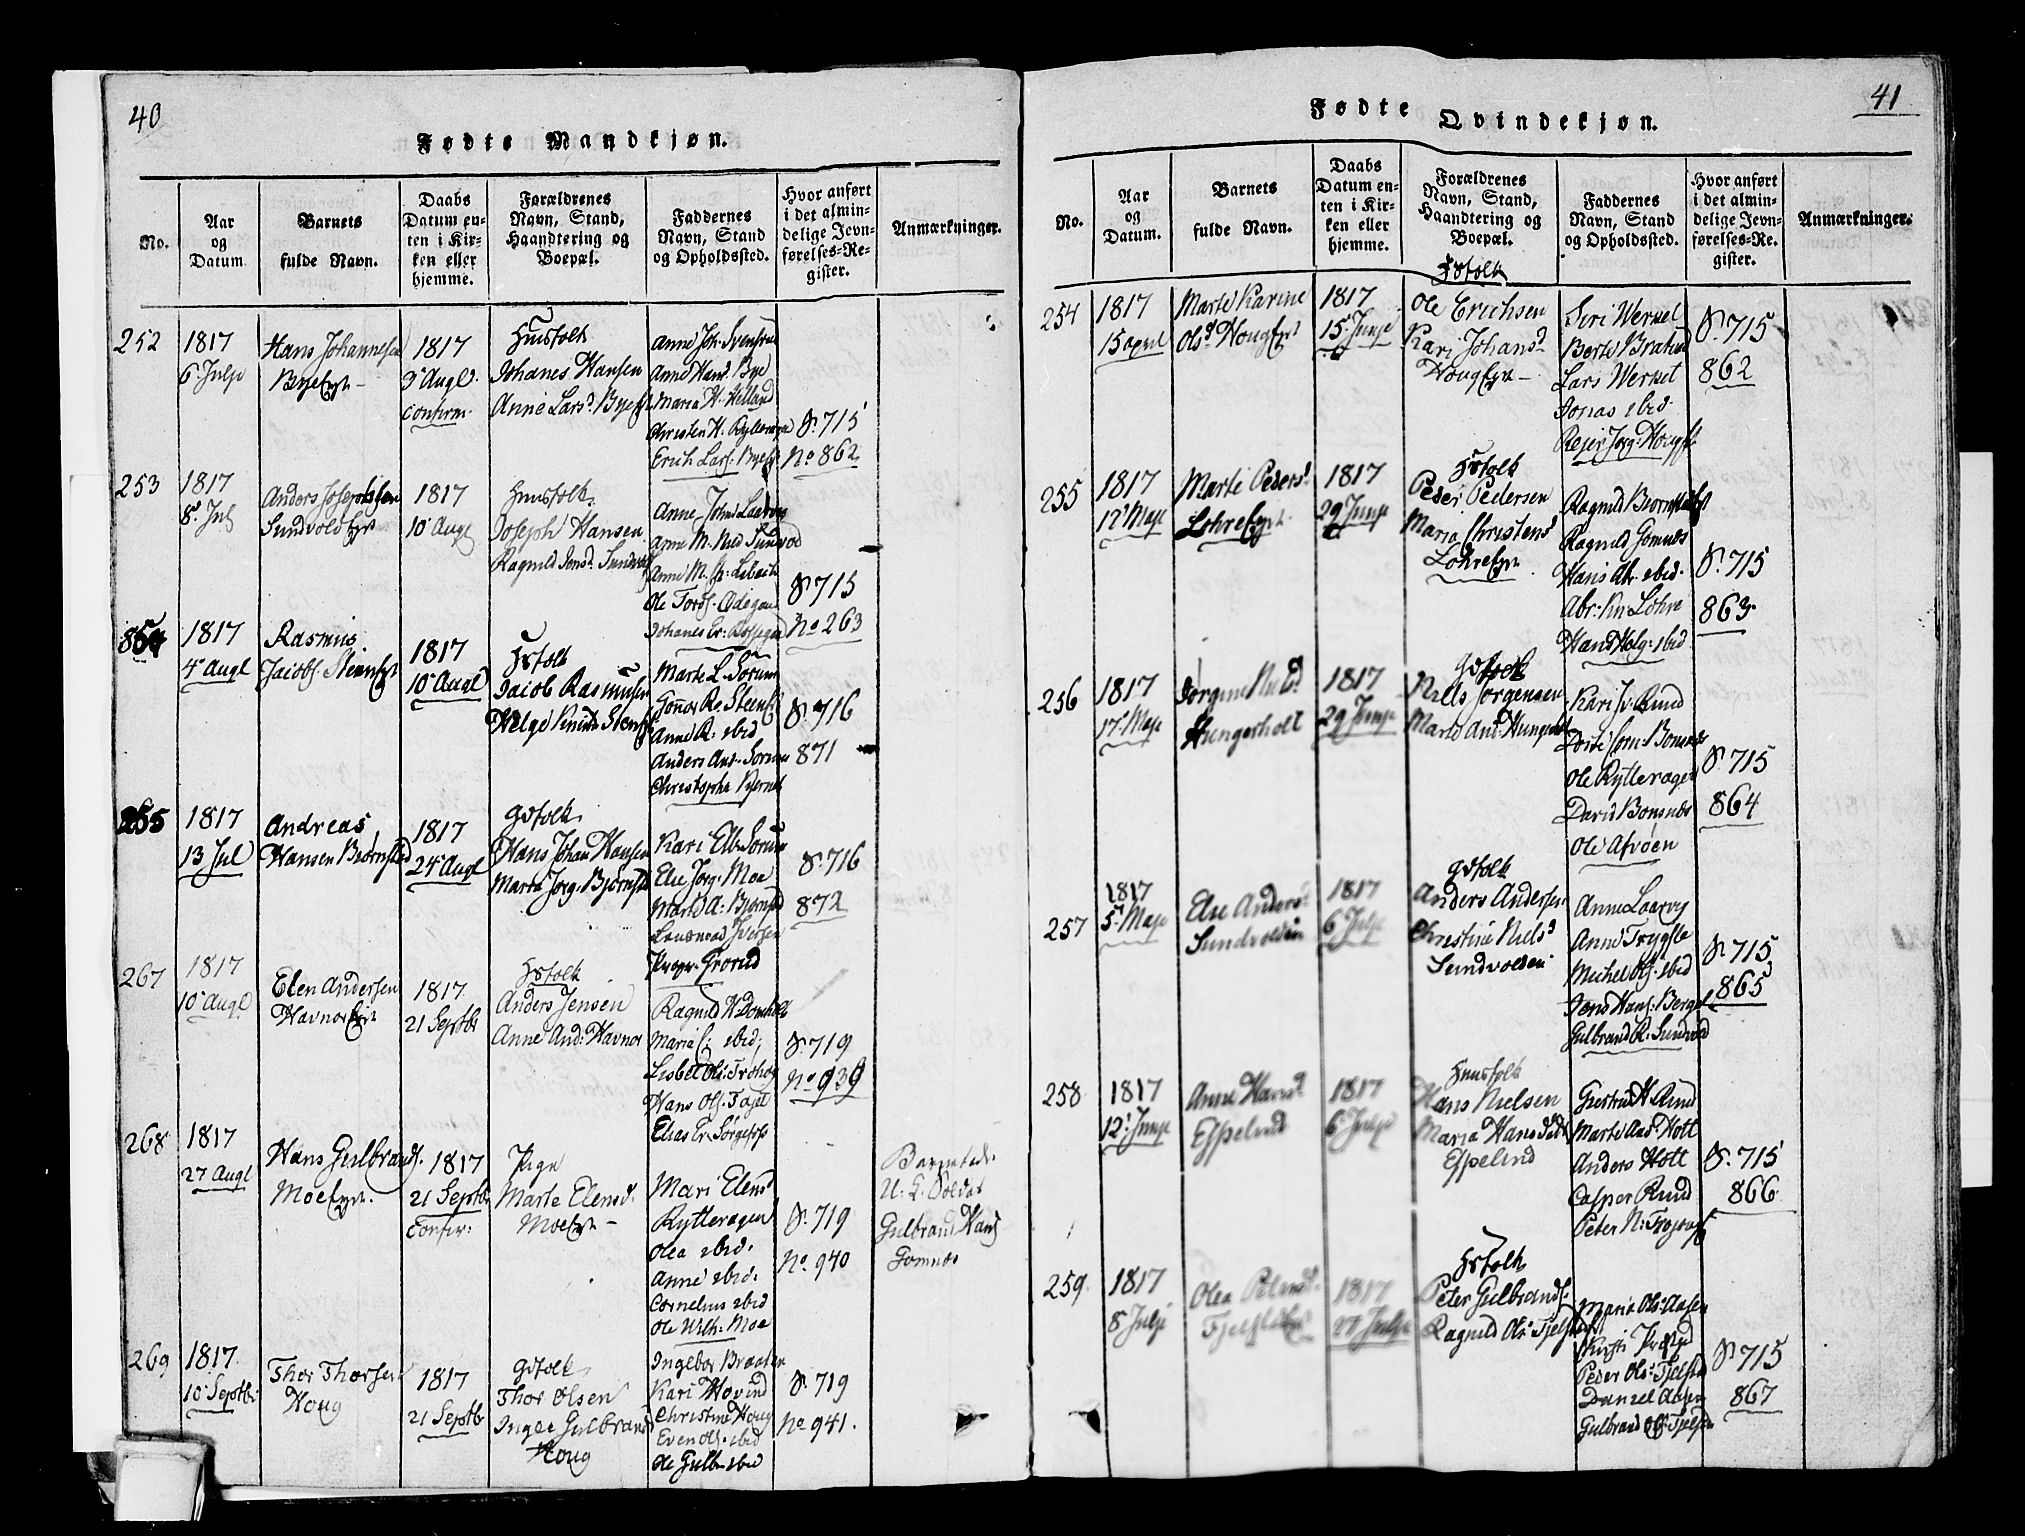 40
Fødte Mandkjøn.
No.
Aar og Datum
Barnets fulde Navn.
Daabs Datum enten i Kirken eller hjemme.
Forældrenes Navn, Stand, Haandtering og Boepæl.
Faddernes Navn, Stand og Opholdssted.
Hvor anført i det almindelige Jevnførelses-Register.
Anmærkninger.
252
1817
6 Julje
Hans Johannesen
Bye Eye
1817
9 Augl.
confirm.
Huusfolk
Johanes Hansen
Anne Larsd. Bye
Anne Joh. Svensrud
Anne Hans. Bye
Maria H. Helland
Christen H. Rytterager
Erich Lars. Bye
S. 715
No 862
253
1817
8 Jul
Anders Josephsen
Sundvold Eye
1817
10 Augl
Huusfolk
Joseph Hansen
Ragnild Jensd. Sundvold
Anne Johs Laarvig
Anne M. Nied Sundvold
Anne M.
Ole Tords. Ødegard
Johanes Er.
S. 715
No 263
254
1817
4 Augl
Rasmus
Jacobs. Steens
1817
10 Augl
Hsfolk
Jacob Rasmusen
Helge Knuts Steens
Marte L. Sorum
Gonor Rs Steens
Anne R. ibid
Anders And. Sorum
Christopher Bjerned
S. 716
871
255
1817
13 Jul
Andreas
Hansen Bjørnstad
1817
24 Augl
Gdfolk
Hans Johan Hansen
Maria Jorg. Bjørnst
Kari Elb. Sorum
Else Jorg. Moe
Marte A. Bjørnstad
Iversen
Grorud
S. 716
872
267
1817
10 Augl
Elen Andersen
Havnor
1817.
21 Septbr
Hsfolk
Anders Jensen
Anne And. Havnor
Ragnild H. Domholt
Maria C. ibid.
Lisbet Ols. Frøhog
Hans Ols.
Elias Er. Sørgefos
S. 719
No 939
268
1817
27 Augl
Hans Gulbrands.
Moe Eye.
1817
21 Septbr
Confir.
Pige
Marte Elensd.
Moe
Mari Elens
Rytteragen
Olea ibid.
Anne ibid.
Cornelius ibid
Ole Wilh. Moe
S. 719
No. 940
Barnefader
U. G. Soldat
Gulbrand Hans
Gomnæs
269
1817.
10 Septbr
Thor Thorsen
Houg
1817
21 Septbr
Gdfolk
Thor Olsen
Inger Gulbrands
Houg
Ingebor Braaten
Kari Hovind
Christine Houg
Even Ols. ibid
Ole Gulb. ibid
S. 719
No 941.
41
Fødte Qvindekjøn.
No.
Aar og Datum.
Barnets fulde Navn.
Daabs Datum enten i Kirken eller hjemme.
Forældrenes Navn, Stand, Haandtering og Boepæl.
Faddernes Navn, Stand og Opholdssted.
Hvor anført i det almindelige Jevnførelses-Register.
Anmærkninger.
254
1817
15 april
Marte Karine
Olsd. Houg
1817
15 Junje
Hsfolk
Ole Erichsen
Kari Johansd
Houg
Siri Werkel
Berte Braten
Lars Werket
Jonas ibid.
Rejer Jorg. Houg
S. 715
862
255
1817
12 Maje
Marte Peders
Lohre
1817
29 Junje
Hsfolk
Peder Pedersen
Maria Christens
Lohre
Ragnild Bjørnstad
Ragnild Gomnæs
Hans Abr. ibid.
Abr. Kn. Lohre
Hans Helg. ibid
S. 715
863.
256
1817
17 Maje
Jorgine Niels
Hungerholt
1817
29 Junje
Gdfolk
Niels Jorgensen
Marte And. Hungerholt
Kari Iv. Rund
Dorte Jorn. Bonsnes
Ole Rytterager
David Bonsnæs
Ole Afvøen
S. 715
864
257
1817
5 Maje
Else Anders
Sundvolden
1817
6 Julje
Gdfolk
Anders Andersen
Christine Niels
Sundvolden
Anne Laarvig
Anne Trygsle
Michel Ols. ibid
Jens Hans. Berget
Gulbrand R. Sundvold
S. 715
865
258
1817
12 Junje
Anne Hansd
Espelund
1817
6 Julje
Huusfolk
Hans Nielsen
Maria Hans
Espelund
Giertrud H. Rund
Marte And. Hott
Anders Hott
Casper Rund
Peter N.
S. 715
866
259
1817
8 Julje
Olea Petersd.
Fjelstad
1817
27 Julje
Hsfolk
Peter Gulbrands.
Ragnild Ols. Fjelstad
Maria Ols. Aasen
Kirsti
Peder Ols. Fjelstad
Daniel Aasen
Gulbrand Ols. Fjelstad
S. 715
867